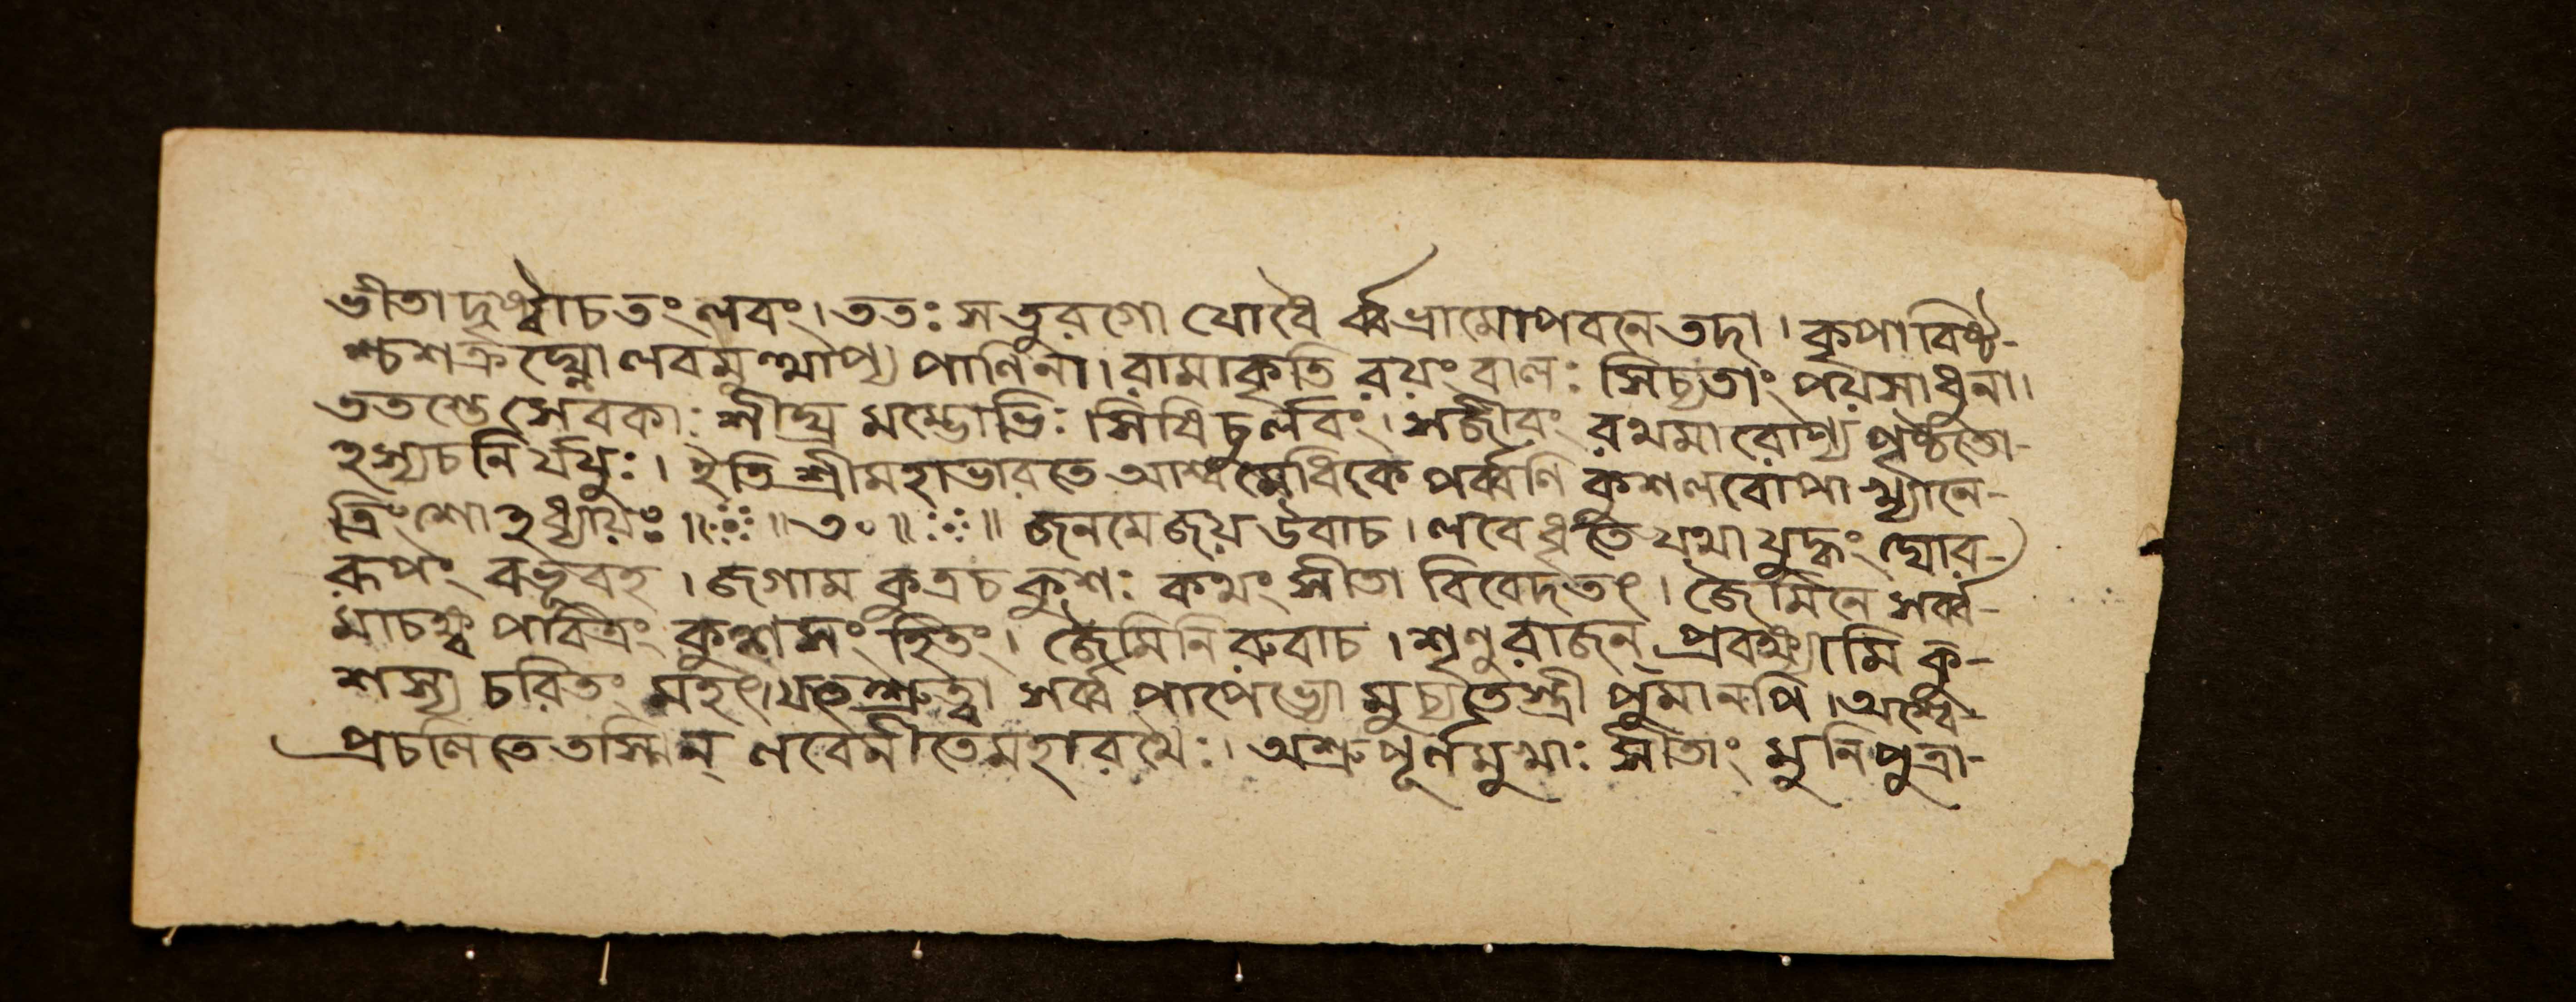 ভীতা দৃষ্ট্বাচ তং লবং। ততঃ স তুরগো যোধৈ র্ব্বভ্রামোপবনে তদা। কৃপাবিষ্ট-
শ্চ শত্রুঘ্নো লবমুত্থাপ্য পাণিনা। রামাকৃতি রয়ং বালঃ সিচ্যতাং পয়সাধুনা।
ততস্তে সেবকাঃ শীঘ্র মম্ভোভিঃ সিষিচুর্লবং। সজীবং রথমারোপ্য পৃষ্ঠতো-
ঽস্যচ নির্যযুঃ। ইতি শ্রীমহাভারতে আশ্বমেধিকে পর্ব্বণি কুশলবোপাখ্যানে-
ত্রিংশোঽধ্যায়ঃ॥ ॥৩০॥ ॥ জনমেজয় উবাচ। লবে ধৃতে যথা যুদ্ধং ঘোর-
রূপং বভূবহ। জগাম কুত্রচ কুশঃ কথং সীতা বিবেদতৎ। জৈমিনে সর্ব্ব-
মাচক্ষ্ব পবিত্রং কুশসংহিতং। জৈমিনি রুবাচ। শৃণু রাজন্ প্রবক্ষ্যামি কু-
শস্য চরিতং মহৎ। যৎ শ্রুত্বা সর্ব্ব পাপেভ্যো মুচ্যতে স্ত্রী পুমানপি। অশ্বে-
প্রচলিতে তস্মিন্ লবেনীতে মহারথৈঃ। অশ্রুপূর্ণমুখাঃ সীতাং মুনিপুত্রা-